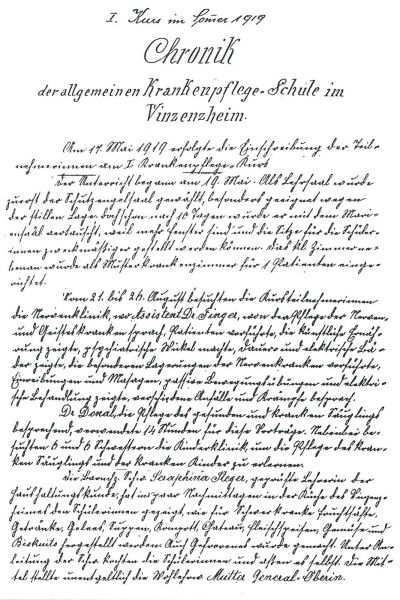 I. Kurs im Sommer 1919
Chronik
der allgemeinen Krankenpflege-Schule im
Vinzenzheim.
Am 17. Mai 1919 erfolgte die Einschreibung der Teil-
nehmerinnen am I. Krankenpflege-Kurs
Der Unterricht begann am 19. Mai. Als Lehrsaal wurde
zuerst der Schutzengelsaal gewählt, besonders geeignet wegen
der stillen Lage, doch schon nach 10 Tagen wurde er mit dem Marien-
saal vertauscht, weil mehr Fenster sind und die Sitze für die Schüler-
innen zweckmäßiger gestellt werden können. Das kl. Zimmer ne-
benan wurde als Musterkrankenzimmer für 1 Patienten einge-
richtet.
Vom 21. bis 26. August besuchten die Kursteilnehmerinnen
die Nervenklinik, wo Assistent Dr. Singer, von der Pflege der Nerven-
und Geisteskranken sprach, Patienten vorführte, die künstliche Ernäh-
rung zeigte, psychiatrische Wickel machte, Dauer- und elektrische Bä-
der zeigte, die besonderen Lagerungen der Nervenkranken vorführte,
Einreibungen und Massagen, passive Bewegungsübungen und elektri-
sche Behandlung zeigte, verschiedene Anfälle und Krämpfe besprach.
Dr. Donat, die Pflege des gesunden und kranken Säuglings
besprechend, verwendete 14 Stunden für diese Vorträge. Nebenbei be-
suchten 6 und 6 Schwestern die Kinderklinik, um die Pflege des kran-
ken Säuglings und der kranken Kinder zu erlernen.
Die Barmh. Schw. Seraphina Steger, geprüfte Lehrerin der
Haushaltungskunde, hat in paar Nachmittagen in der Küche des Vinzenz-
heimes den Schülerinnen gezeigt, wie für Schwerkranke Fruchtsäfte,
Getränke, Gelees, Suppen, Kompott, Chateau, Fleischspeisen, Gemüse und
Biskuits hergestellt werden. Auch Gefrorenes wurde gemacht. Unter An-
leitung der Schw. kochten die Schülerinnen und aßen es selbst. Die Mit-
tel stellte unentgeltlich die Wohlehrw. Mutter General-Oberin.